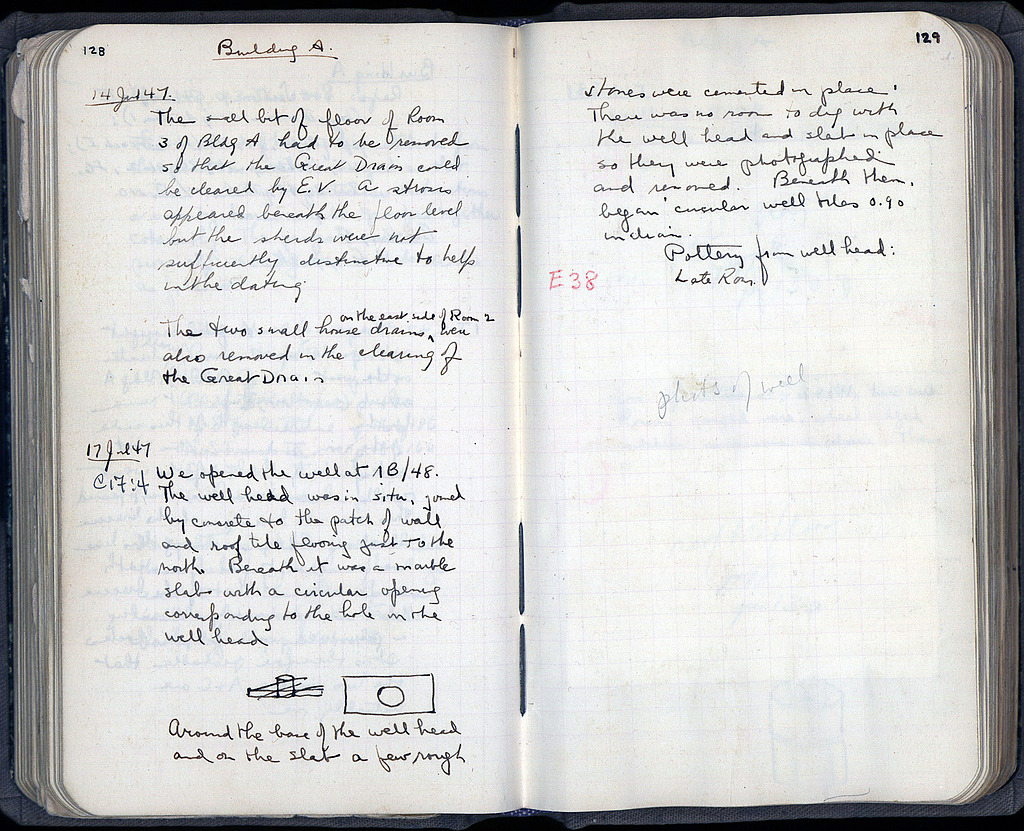 128
Building A.
14 Jul 47.
The small bit of floor of Room
3 of Bldg A had to be removed
so that the Great Drain could
be cleared by E.V. A strosis
appeared beneath the floor level
but the sherds were not
sufficiently distinctive to help
in the dating
on the east side of Room 2
The two small house drains, were
also removed in the clearing of
the Great Drain
17 Jul 47
C17:4 We opened the well at 18/48.
The well head was in situ, joined
by concrete to the patch of wall
and roof tile flooring just to the
north. Beneath it was a marble
slab with a circular opening
corresponding to the hole in the
well head
Around the base of the well head
and on the slab a few rough
129
stones were cemented in place.
There was no room to dig with
the well head and slab in place
so they were photographed
and removed. Beneath them,
began circular well tiles 0.90
in diam.
Pottery from well head:
E38 Late Rom.
phots of well